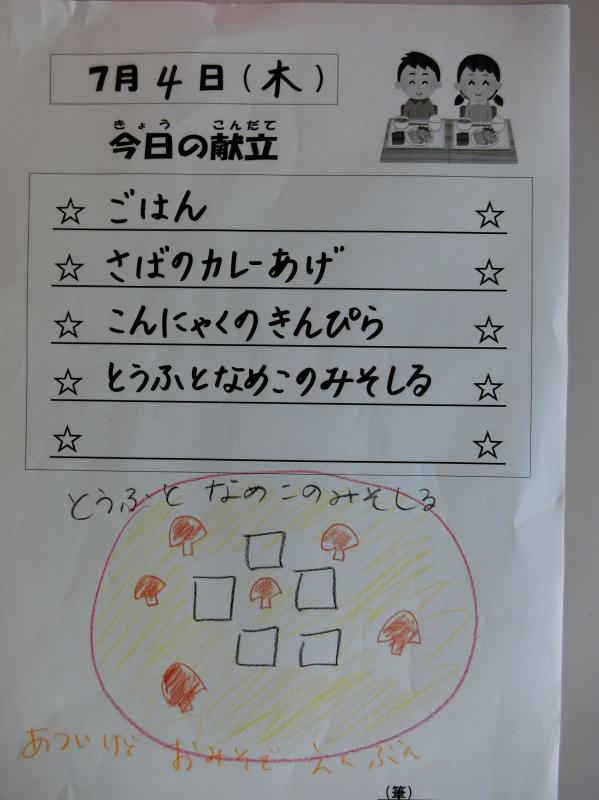 7月4日(木)
きょう こんだて
今日の献立
☆ ごはん ☆
☆ さばのカレーあげ ☆
☆ こんにゃくのきんぴら ☆
☆ とうふとなめこのみそしる ☆
☆ ☆
とうふと なめこのみそしる
あついけど おみそで えんぶん
(筆)